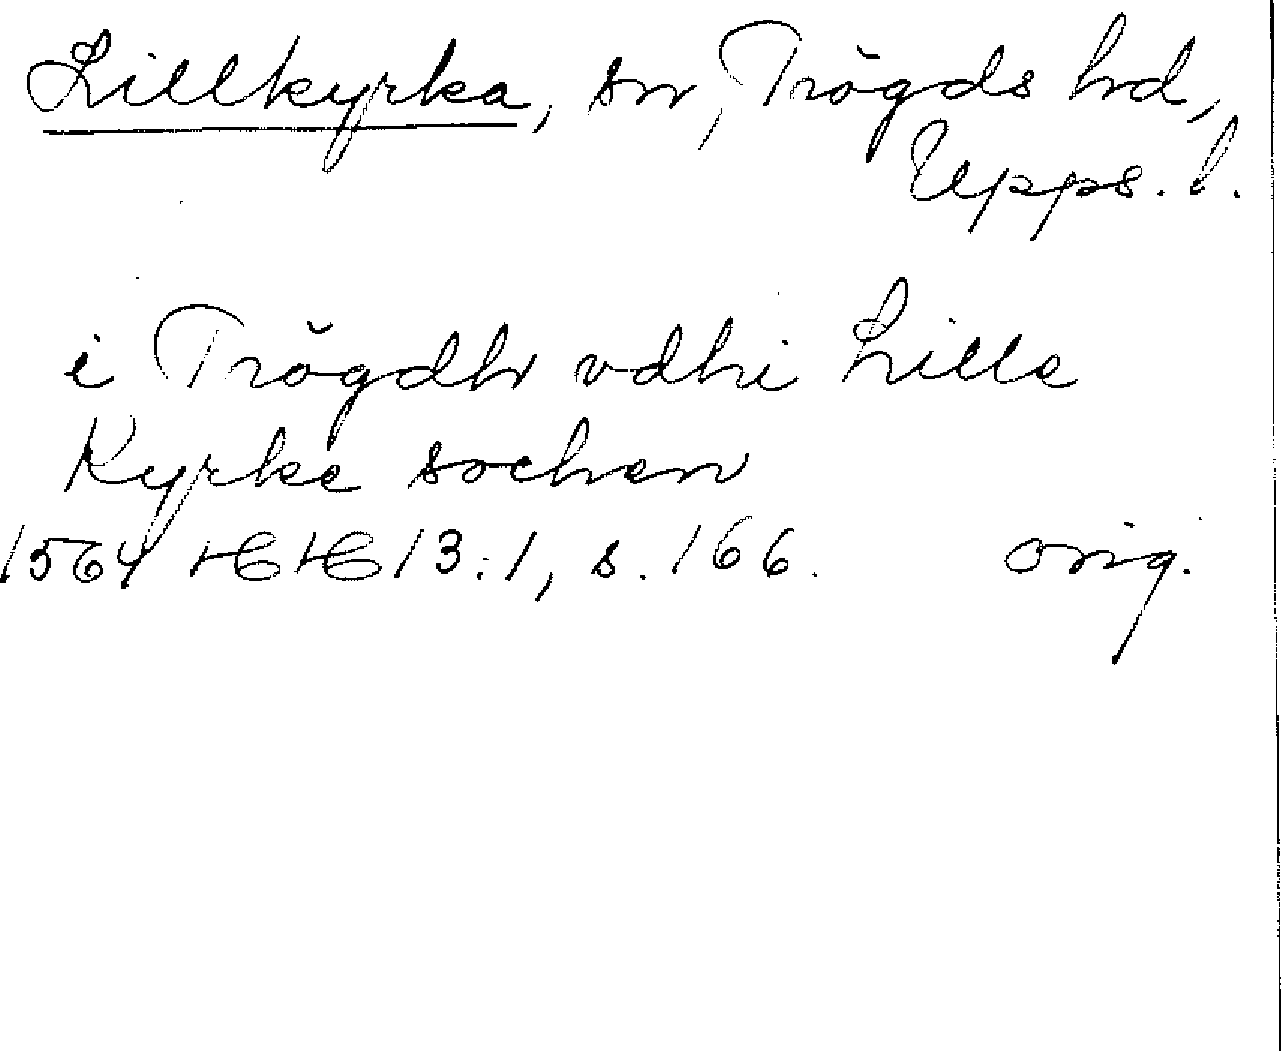 Lillkyrka, sn, Trögds hd,
Upps. l.
i Trögdh vdhi Lille
Kyrke sochen
1564 HH 13:1, s. 166. orig.